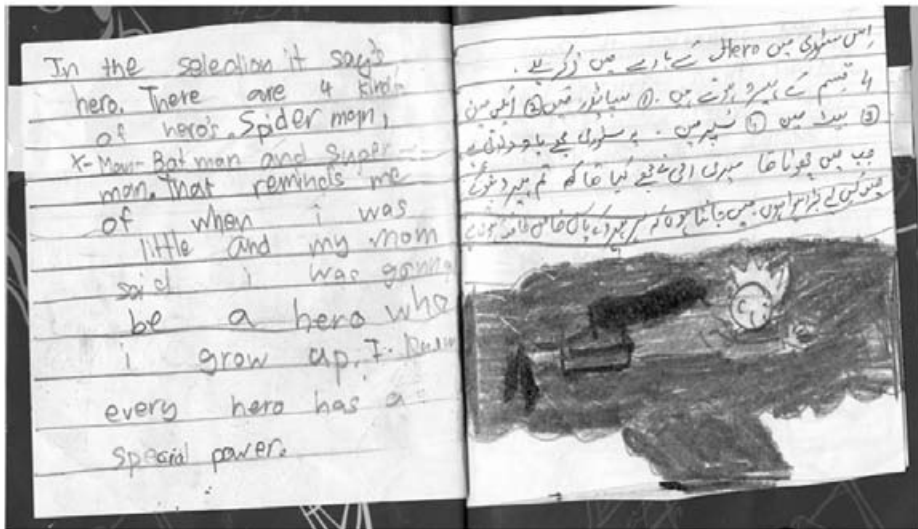 In the selection it say's
hero. There are 4 kind
of hero's. Spider man,
X-Man- Bat man and Super-
man. That reminds me
of when i was
little and my mom
said i was gonna
be a hero who
i grow up. I
every hero has a
special power.
اس سٹوری میں Hero کے بارے میں ذکر ہے.
4 قسم کے ہیرو ہوتے ہیں. ① سپائڈر مین ② ایکس مین
③ بیٹ مین ④ سپر مین. یہ سٹوری مجھے یاد دلاتی ہے
جب میں چھوٹا تھا میری امی نے مجھے کہا تھا کہ تم ہیرو بنو گے
جب میں بڑا ہو کے خاص طاقت ہوتی ہے